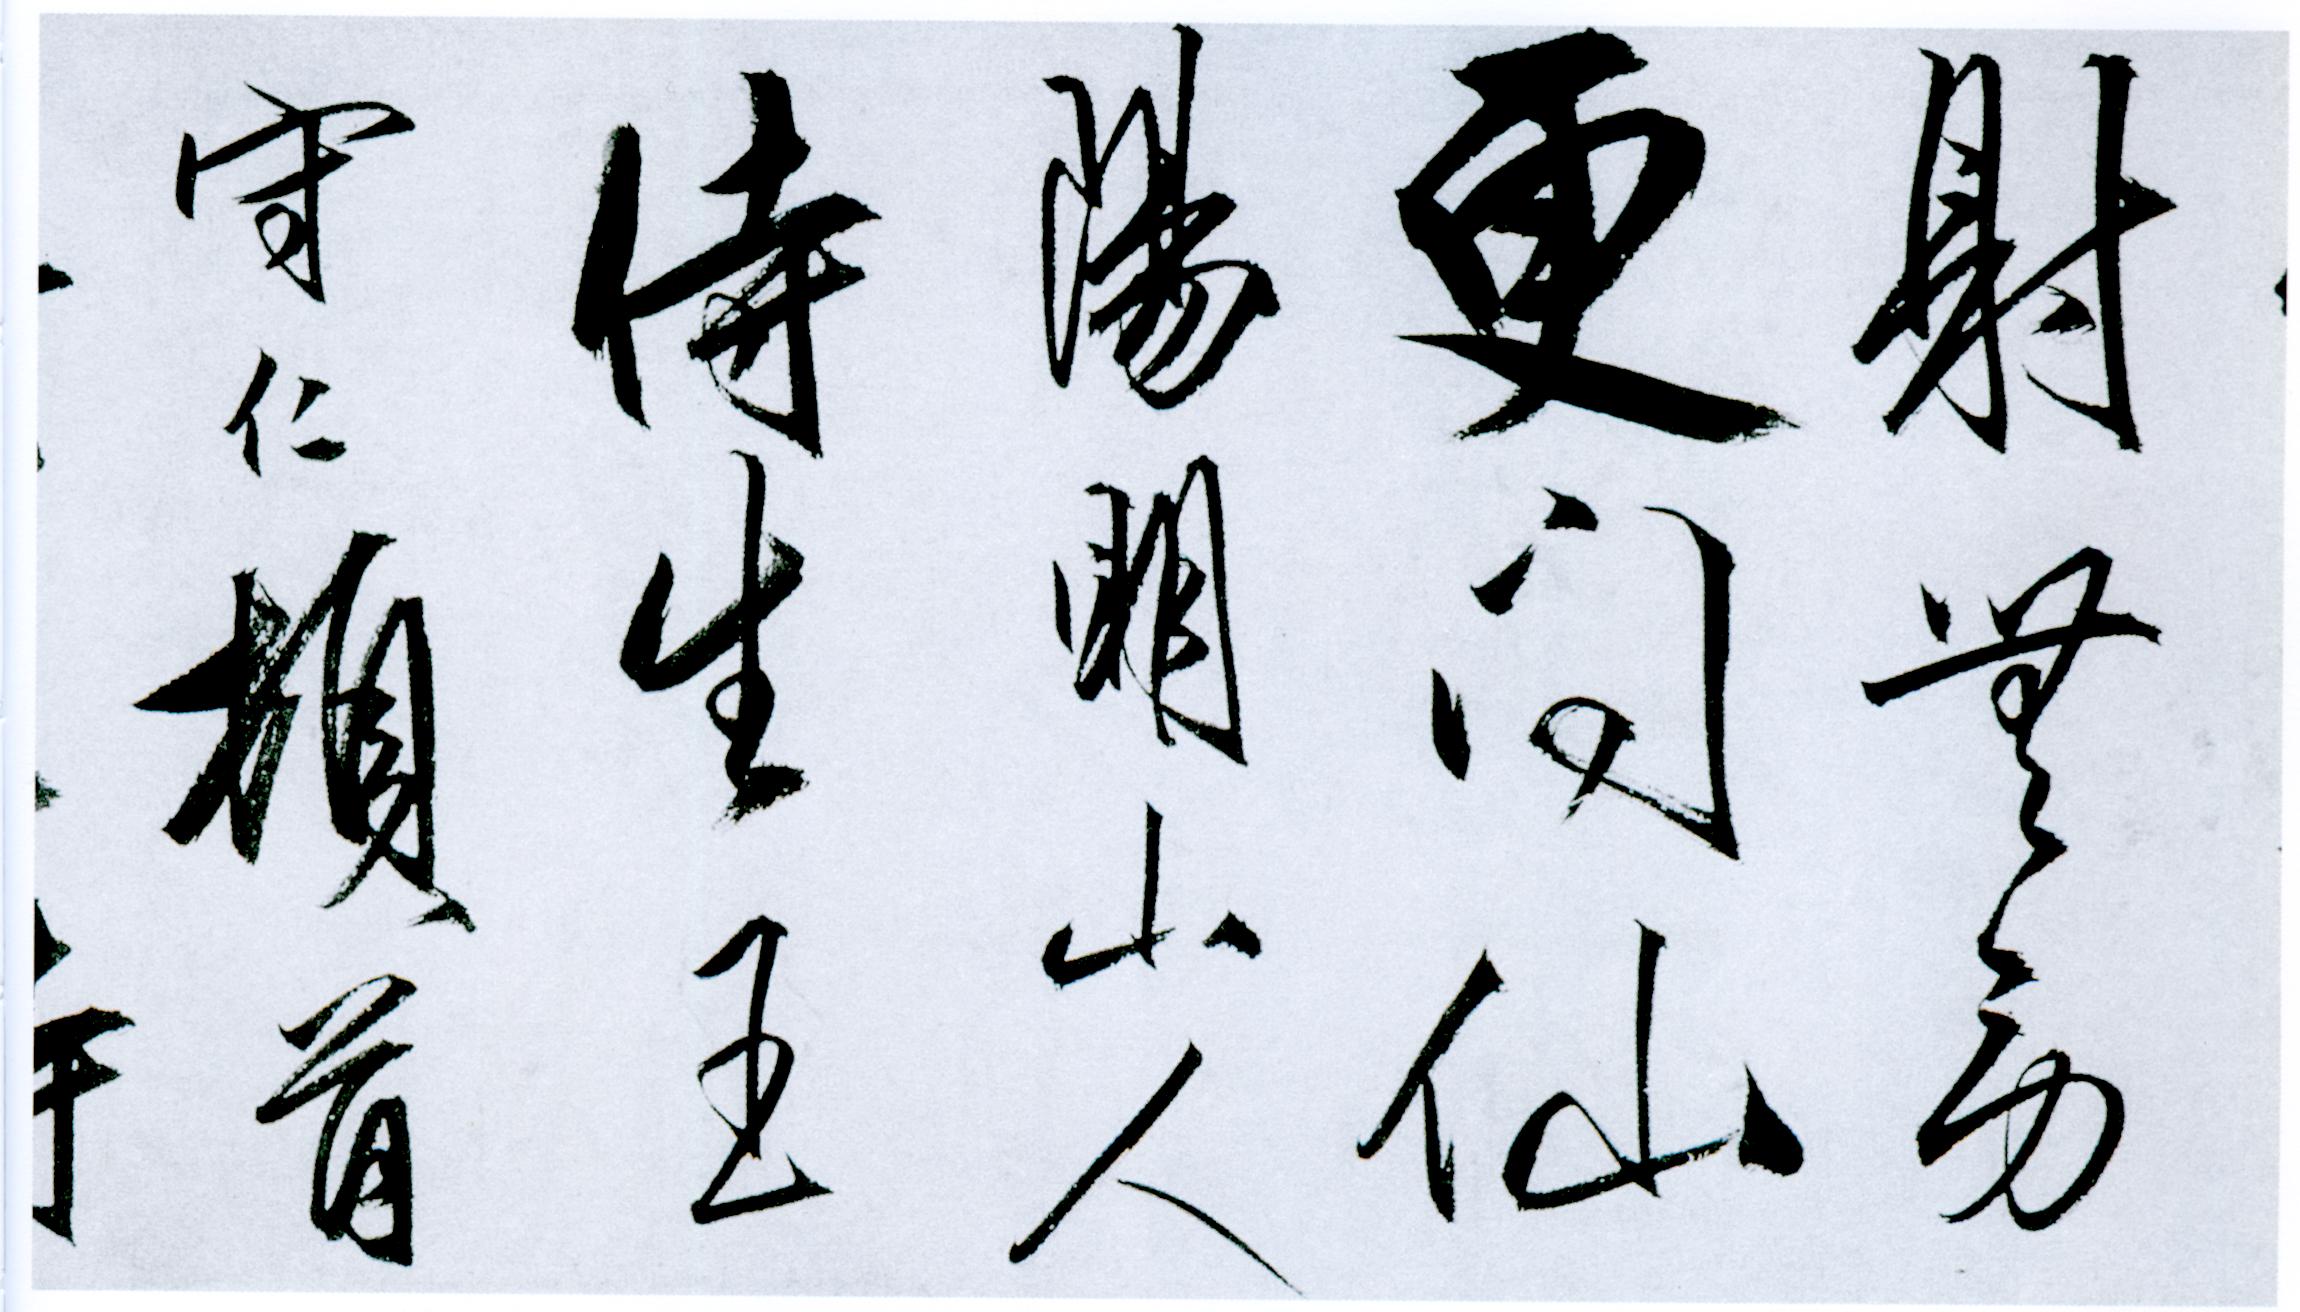 射無勞
更問仙
陽明山人
侍生王
守仁頓首